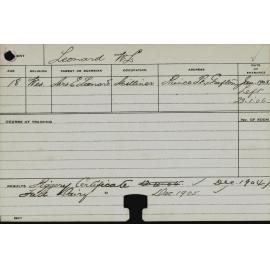 Leonard W L
AGE RELIGION PARENT OR GUARDIAN OCCUPATION ADDRESS DATE OF ENTRANCE
18 Wes Mrs E Leonard Milliner Prince St Grafton Jan 1904
Left
COURSE OF TRAINING NO. OF ROOM
RESULTS Piggery Certificate Dec. 1904
Dairy " Dec 1905